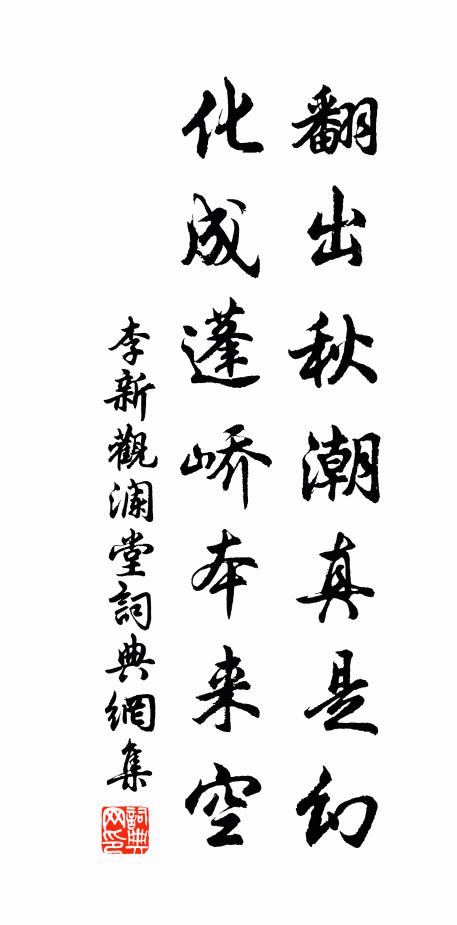 翻出秋潮真是幻
化成蓬峤本来空
李新觀澜堂詞典網集
詞典网印